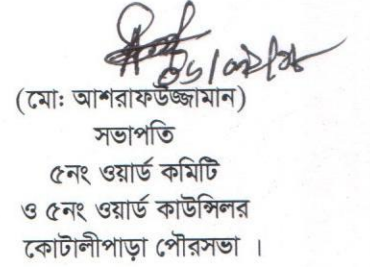 (মো: আশরাফউজ্জামান)
সভাপতি
৫নং ওয়ার্ড কমিটি
ও ৫নং ওয়ার্ড কাউন্সিলর
কোটালীপাড়া পৌরসভা ।